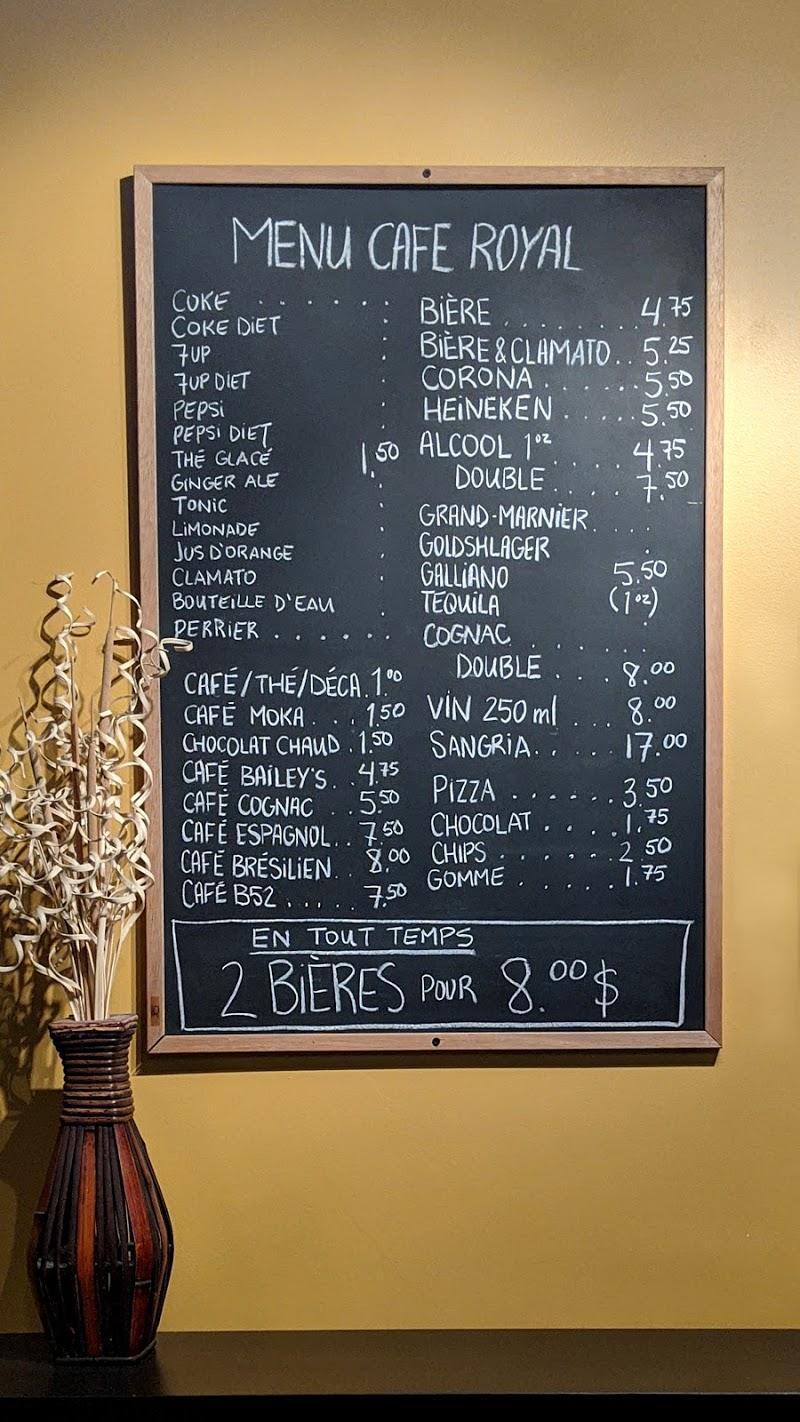 MENU CAFE ROYAL
COKE . . . . . .
COKE DIET
7UP
7UP DIET
PEPSI
PEPSI DIET
THÉ GLACÉ 1.50
GINGER ALE
TONIC
LIMONADE
JUS D'ORANGE
CLAMATO
BOUTEILLE D'EAU
PERRIER . . . . . .
CAFÉ/THÉ/DÉCA. 1.00
CAFÉ MOKA . . . 1.50
CHOCOLAT CHAUD . 1.50
CAFÉ BAILEY'S . 4.75
CAFÉ COGNAC . 5.50
CAFÉ ESPAGNOL . . 7.50
CAFÉ BRÉSILIEN . . 8.00
CAFÉ B52 . . . . . 7.50
BIÈRE . . . . . . . 4.75
BIÈRE & CLAMATO . . 5.25
CORONA . . . . . . 5.50
HEINEKEN . . . . . 5.50
ALCOOL 1oz . . . . 4.75
DOUBLE . . . . 7.50
GRAND-MARNIER . . .
GOLDSHLAGER
GALLIANO 5.50
TEQUILA (1oz)
COGNAC . . . . .
DOUBLE . . . 8.00
VIN 250 ml . . . 8.00
SANGRIA . . . . . 17.00
PIZZA . . . . . . . 3.50
CHOCOLAT . . . . 1.75
CHIPS . . . . . . . 2.50
GOMME . . . . . . 1.75
EN TOUT TEMPS
2 BIÈRES POUR 8.00$